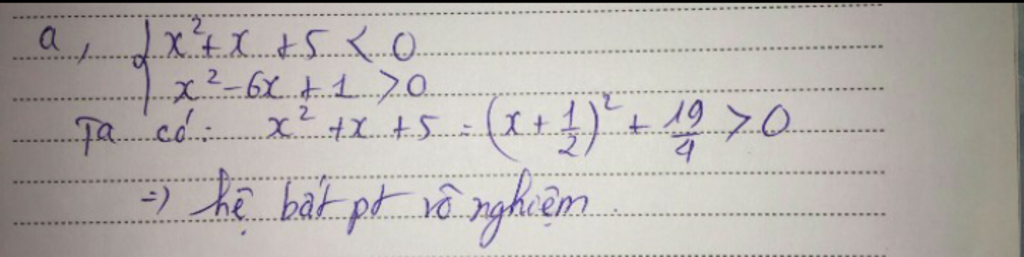 a, { x² + x + 5 < 0
x² - 6x + 1 > 0
Ta có: x² + x + 5 = (x + 1/2)² + 19/4 > 0
=) hệ bất pt vô nghiệm.